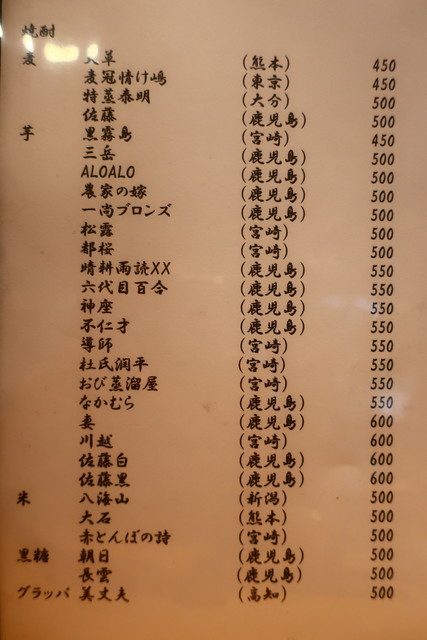 焼酎
麦 草 (熊本) 450
麦冠情け嶋 (東京) 450
特蒸泰明 (大分) 500
佐藤 (鹿児島) 500
芋 黒霧島 (宮崎) 450
三岳 (鹿児島) 500
ALOALO (鹿児島) 500
農家の嫁 (鹿児島) 500
一尚ブロンズ (鹿児島) 500
松露 (宮崎) 500
都桜 (宮崎) 500
晴耕雨読XX (鹿児島) 550
六代目百合 (鹿児島) 550
神座 (鹿児島) 550
不仁才 (鹿児島) 550
導師 (宮崎) 550
杜氏潤平 (宮崎) 550
おび蒸溜屋 (宮崎) 550
なかむら (鹿児島) 550
妻 (鹿児島) 600
川越 (宮崎) 600
佐藤白 (鹿児島) 600
佐藤黒 (鹿児島) 600
米 八海山 (新潟) 500
大石 (熊本) 500
赤とんぼの詩 (宮崎) 500
黒糖 朝日 (鹿児島) 500
長雲 (鹿児島) 500
グラッパ 美丈夫 (高知) 500